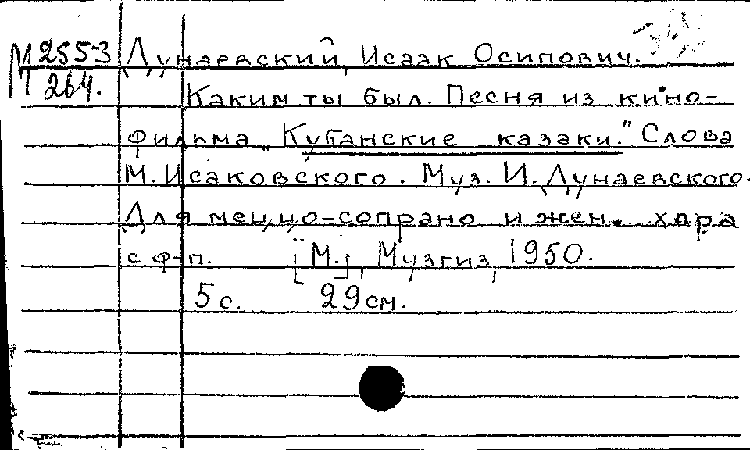 М 2553 Дунаевский, Исаак Осипович.
П 264. Каким ты был. Песня из кино-
фильма „Кубанские казаки." Слова
М. Исаковского. Муз. И. Дунаевского.
Для меццо-сопрано и жен. хора
с ф-п. [М.], Музгиз, 1950.
5 с. 29 см.